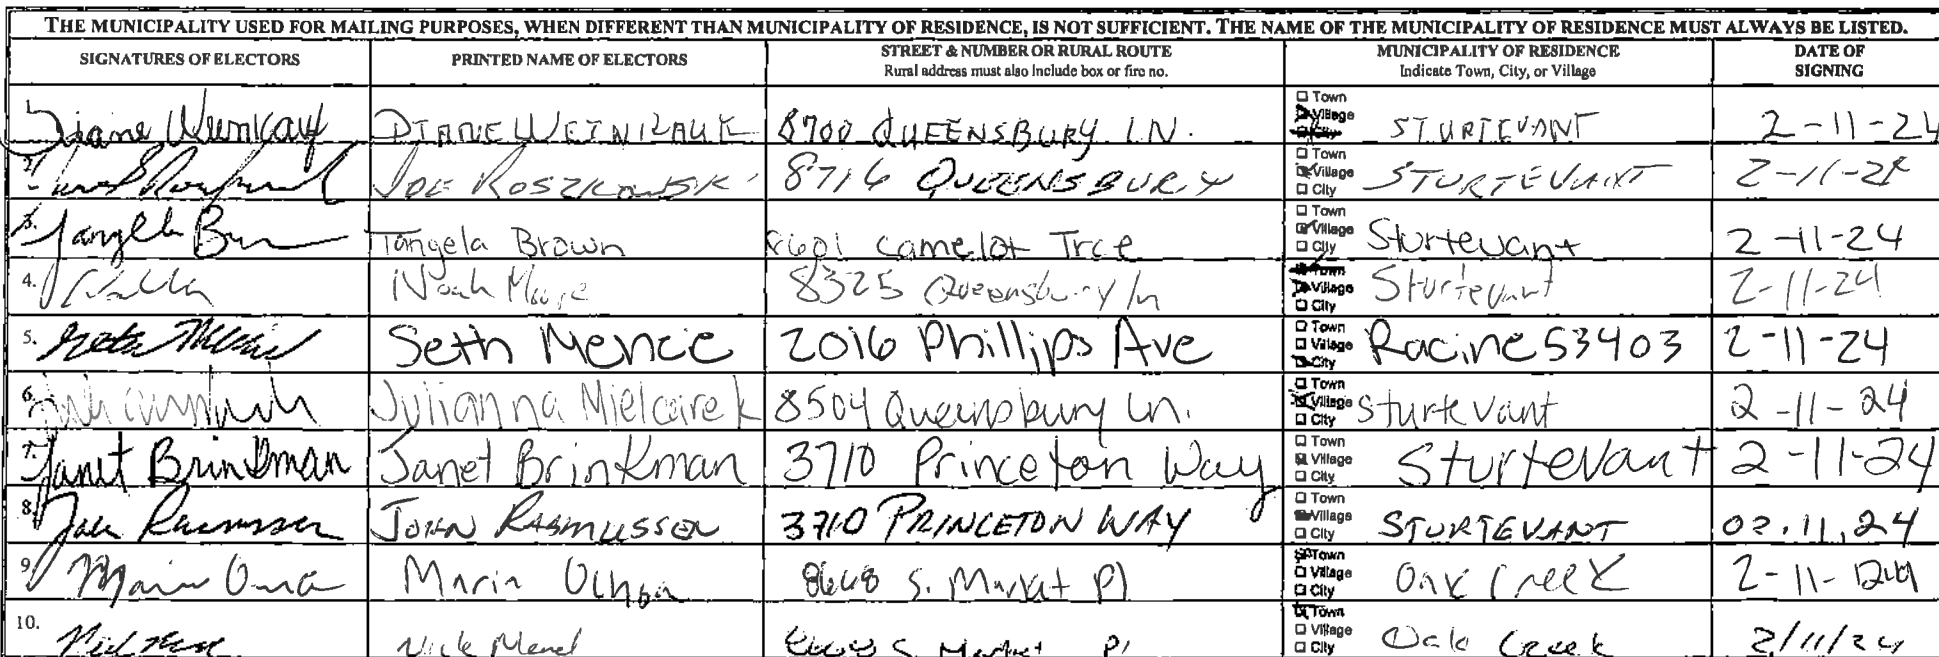 THE MUNICIPALITY USED FOR MAILING PURPOSES, WHEN DIFFERENT THAN MUNICIPALITY OF RESIDENCE, IS NOT SUFFICIENT. THE NAME OF THE MUNICIPALITY OF RESIDENCE MUST ALWAYS BE LISTED.
SIGNATURES OF ELECTORS PRINTED NAME OF ELECTORS STREET & NUMBER OR RURAL ROUTE MUNICIPALITY OF RESIDENCE DATE OF
Rural address must also include box or fire no. Indicate Town, City, or Village SIGNING
1. Diane DIANE 8700 QUEENSBURY LN. Town Village City STURTEVANT 2-11-24
2. JOE ROSZKOWSKI 8716 QUEENSBURY Town Village City STURTEVANT 2-11-24
3. Tangela Tangela Brown 8601 Camelot Trce Town Village City Sturtevant 2-11-24
4. Noah Moore 8325 Queensbury ln Town Village City Sturtevant 2-11-24
5. Seth Mence 2016 Phillips Ave Town Village City Racine 53403 2-11-24
6. Julianna Mielcarek 8504 Queensbury Ln. Town Village City Sturtevant 2-11-24
7. Janet Brinkman Janet Brinkman 3710 Princeton Way Town Village City Sturtevant 2-11-24
8. John Rasmussen JOHN RASMUSSEN 3710 PRINCETON WAY Town Village City STURTEVANT 02.11.24
9. Maria Maria Ochoa S. Market Pl Town Village City Oak Creek 2-11-24
10. Nick S. Market Pl Town Village City Oak Creek 2/11/24